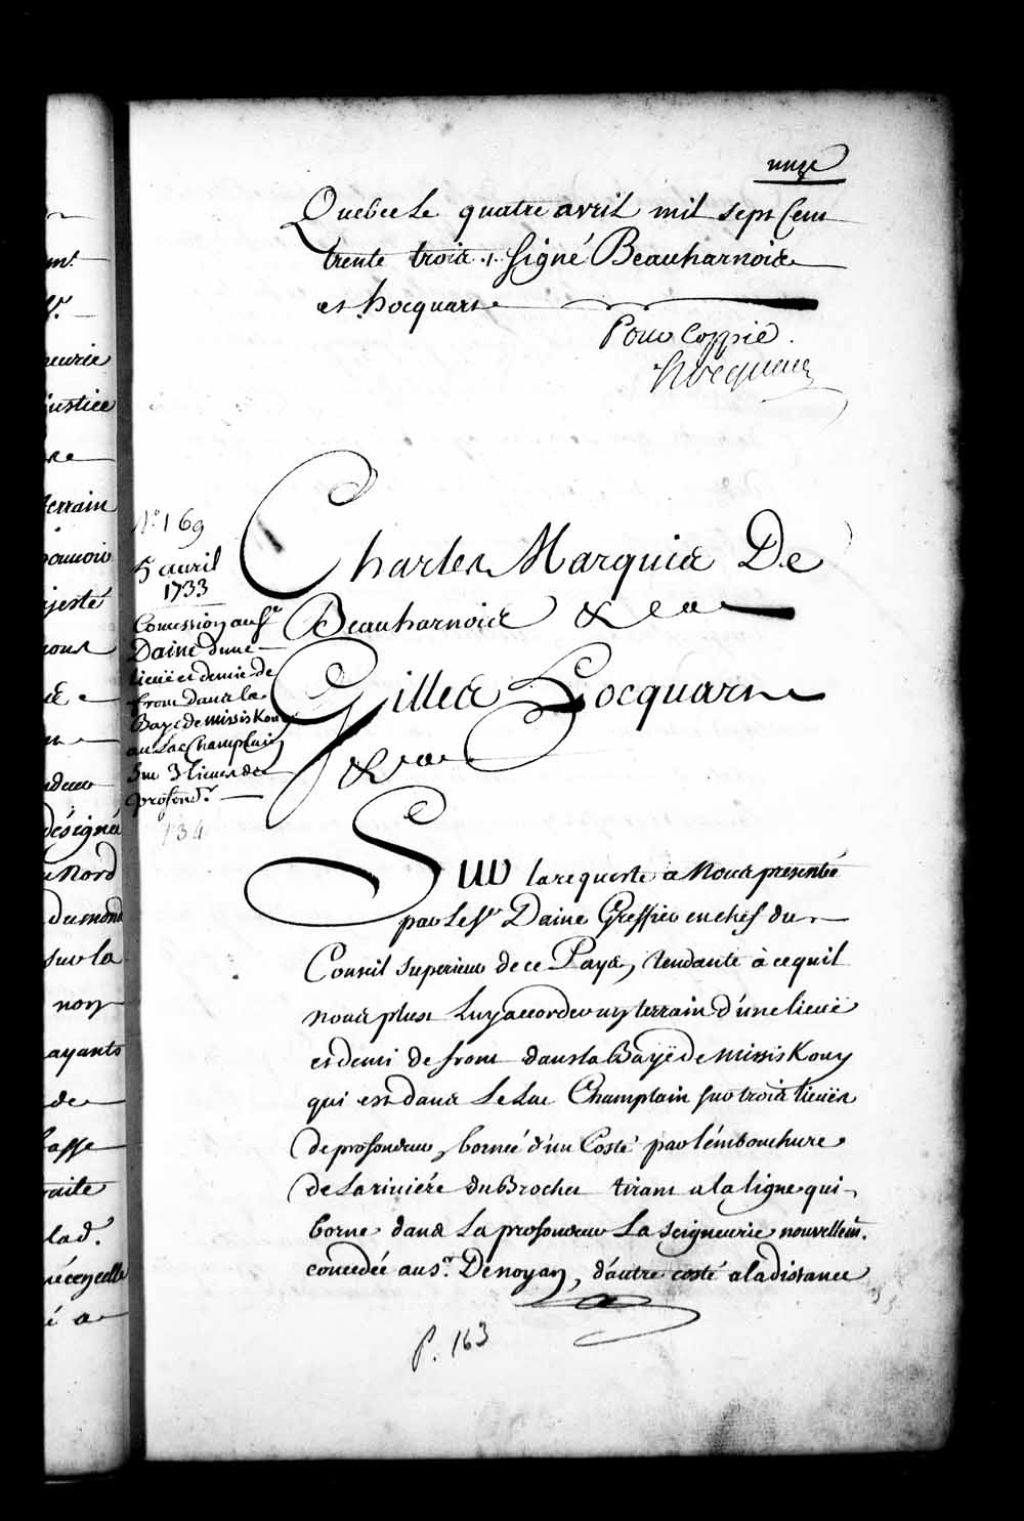 onze
Quebec le quatre avril mil sept Cent
trente trois ./. Signé Beauharnois
et hocquart
Pour Coppie.
hocquart
N.º 169
5 avril
1733
Concession au Sr
Daine d'une
lieuë et demie de
front dans la
Baye de Missiskouy
au Lac Champlain
sur 3 lieues de
profondr.
134
Charles Marquis De
Beauharnois &ca
Gilles Hocquart
&ca
Sur la requeste a Nous presentée
par le Sr Daine Greffier en chef du
Conseil Superieur de ce Pays, tendante à ce quil
nous plust luy accorder un terrain d'une lieuë
et demi de front dans la Bayë de Missiskouy
qui est dans Le Lac Champlain sur trois lieuës
de profondeur, bornée d'un Costé par l'émbouchure
de la riviére du Brochet tirant a la ligne qui
borne dans la profondeur la seigneurie nouvellemt.
concedée au sr. Denoyan, d'autre costé a la distance
p. 163
nt
eurie
justice
re
terrain
pouvoir
jesté
désigné
Nord
du mond
sur la
non
ayants
de
basse
lad.
é a